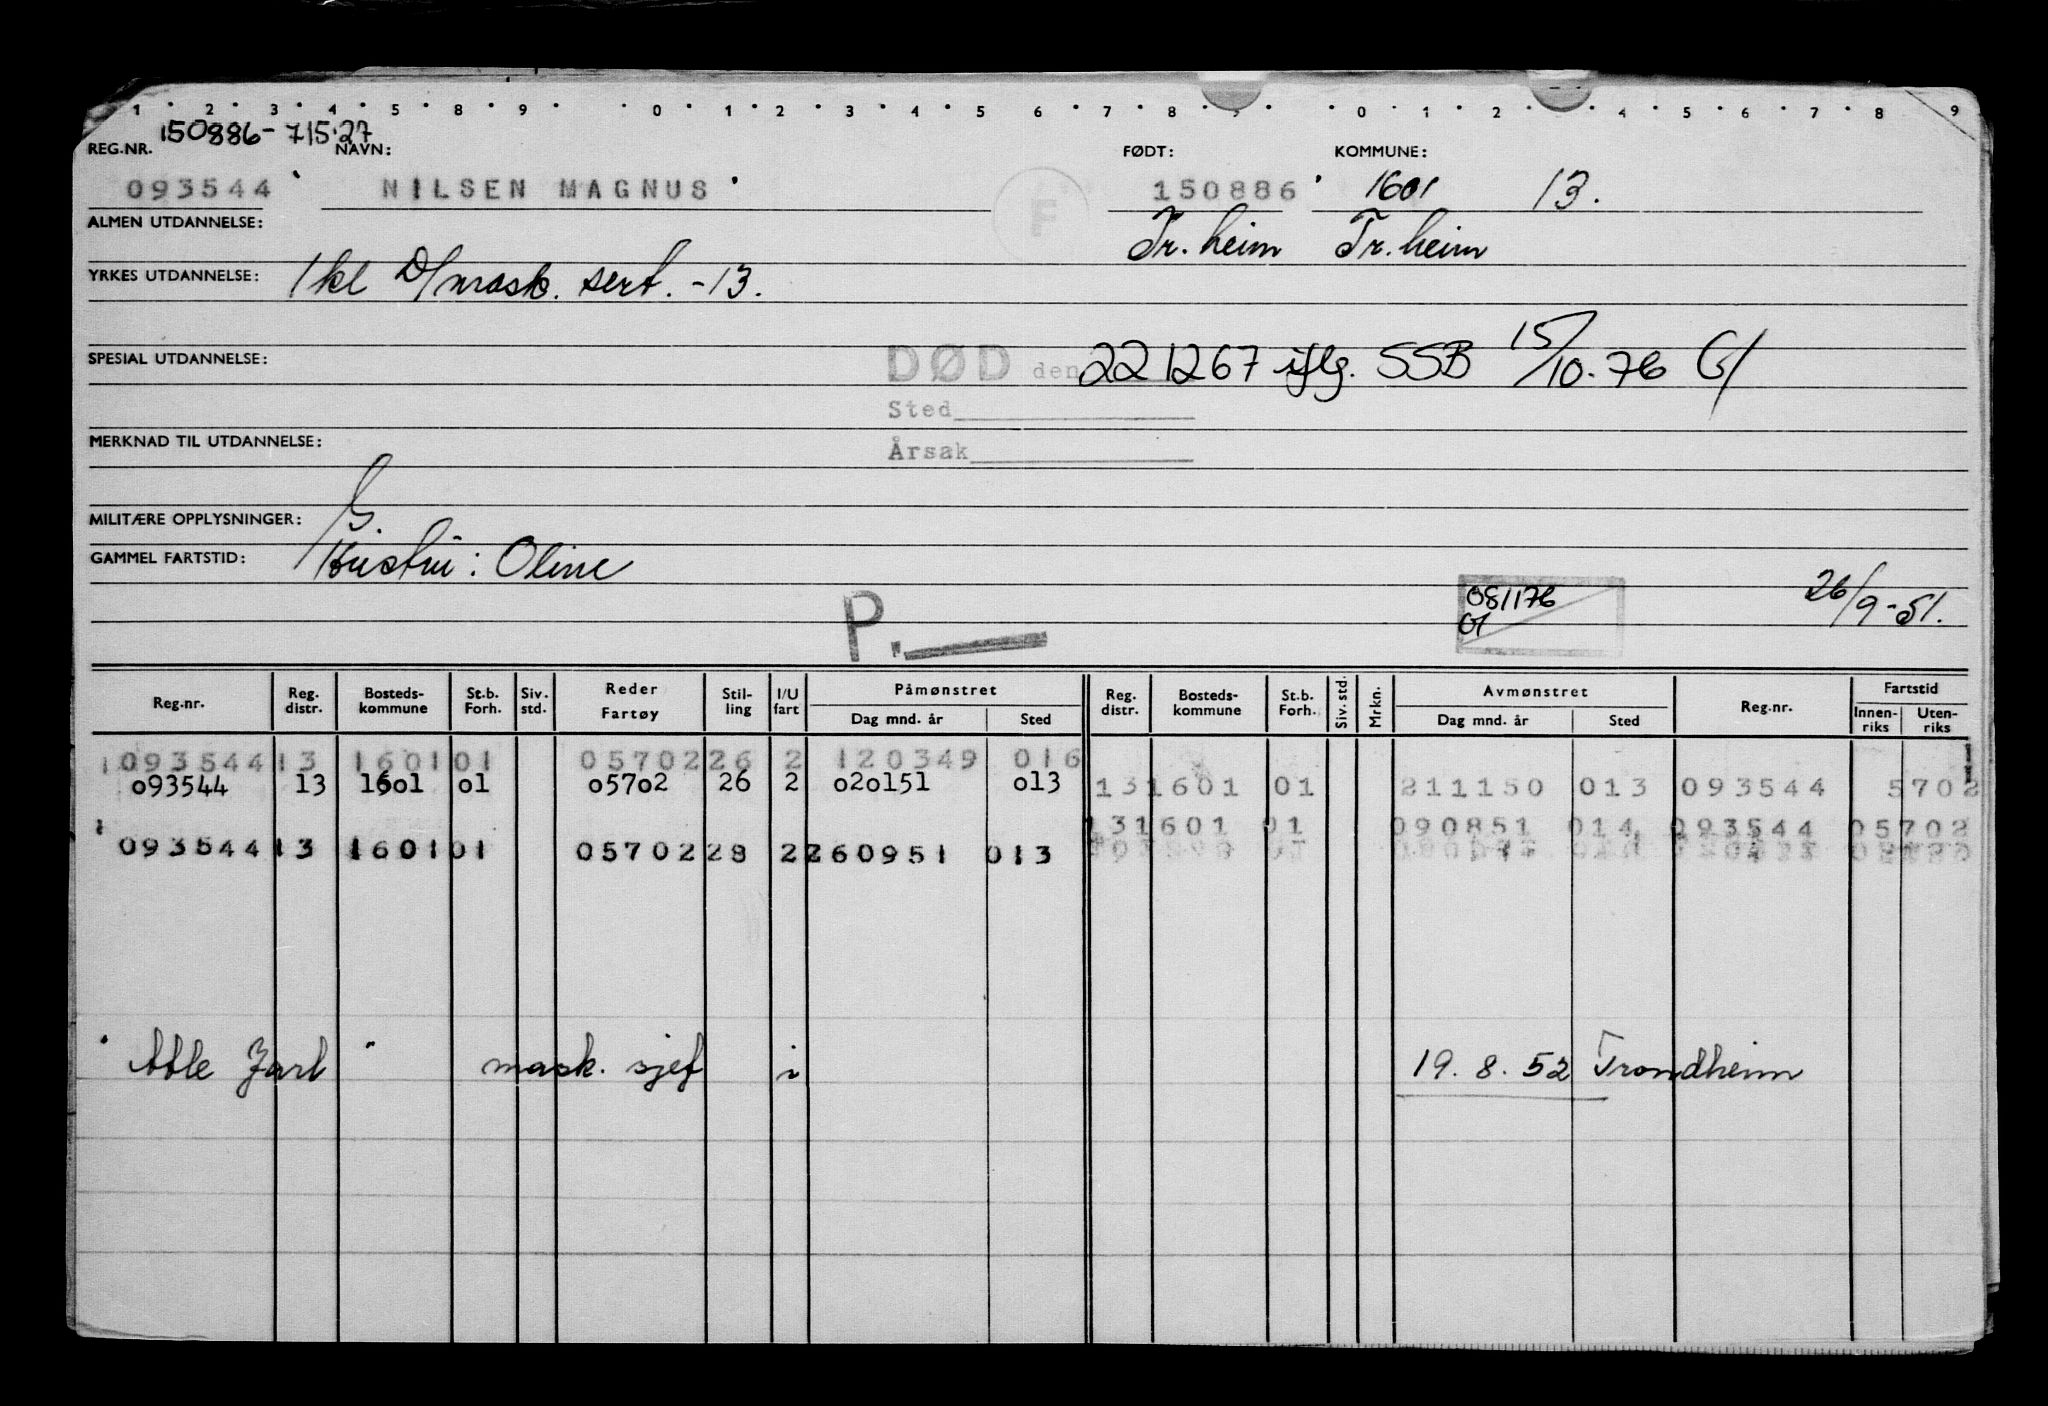 1 2 3 4 5 8 9 0 1 2 3 4 5 6 7 8 9 0 1 2 3 4 5 6 7 8 9
150886-71527
REG.NR. NAVN: FØDT: KOMMUNE:
093544 NILSEN MAGNUS 150886 1601 13.
F
ALMEN UTDANNELSE: Tr.heim Tr.heim
YRKES UTDANNELSE: 1 kl D/mask. sert. -13.
SPESIAL UTDANNELSE: DØD den 221267 iflg. SSB 15/10-76 G/
Sted
MERKNAD TIL UTDANNELSE: Årsak
MILITÆRE OPPLYSNINGER: G.
GAMMEL FARTSTID: Hustru: Oline
081176 26/9-51.
01
P.
Reg.nr. Reg. distr. Bosteds-kommune St.b. Forh. Siv. std. Reder Fartøy Stil-ling I/U fart Påmønstret Dag mnd. år Sted Reg. distr. Bosteds-kommune St.b. Forh. Siv. std. Mrkn. Avmønstret Dag mnd. år Sted Reg.nr. Fartstid Innen-riks Uten-riks
093544 13 1601 01 05702 26 2 120349 016
093544 13 1601 01 05702 26 2 020151 013 13 1601 01 211150 013 093544 5702
13 1601 01 090851 014 093544 05702
093544 13 1601 01 05702 28 2 260951 013
" Atle Jarl " mask. sjef i 19.8.52 Trondheim